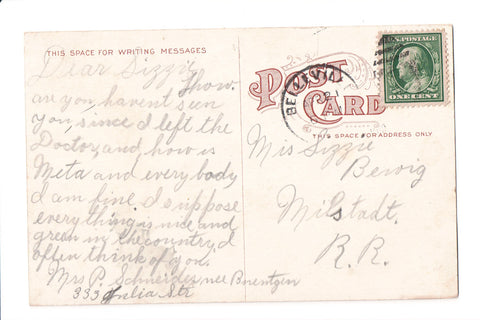 THIS SPACE FOR WRITING MESSAGES
Dear Lizzie
how
are you, havent seen
you, since I left the
Doctor, and how is
Meta and every body
I am fine. I suppose
everything is nice and
green in the country, I
often think of you.
Mrs P. Schneider, nee Buentgen
333 Julia Str
POST CARD
U.S. POSTAGE
ONE CENT
BELLEVIL
THIS SPACE FOR ADDRESS ONLY
Mis Lizzie
Berwig
Milstadt.
R.R.